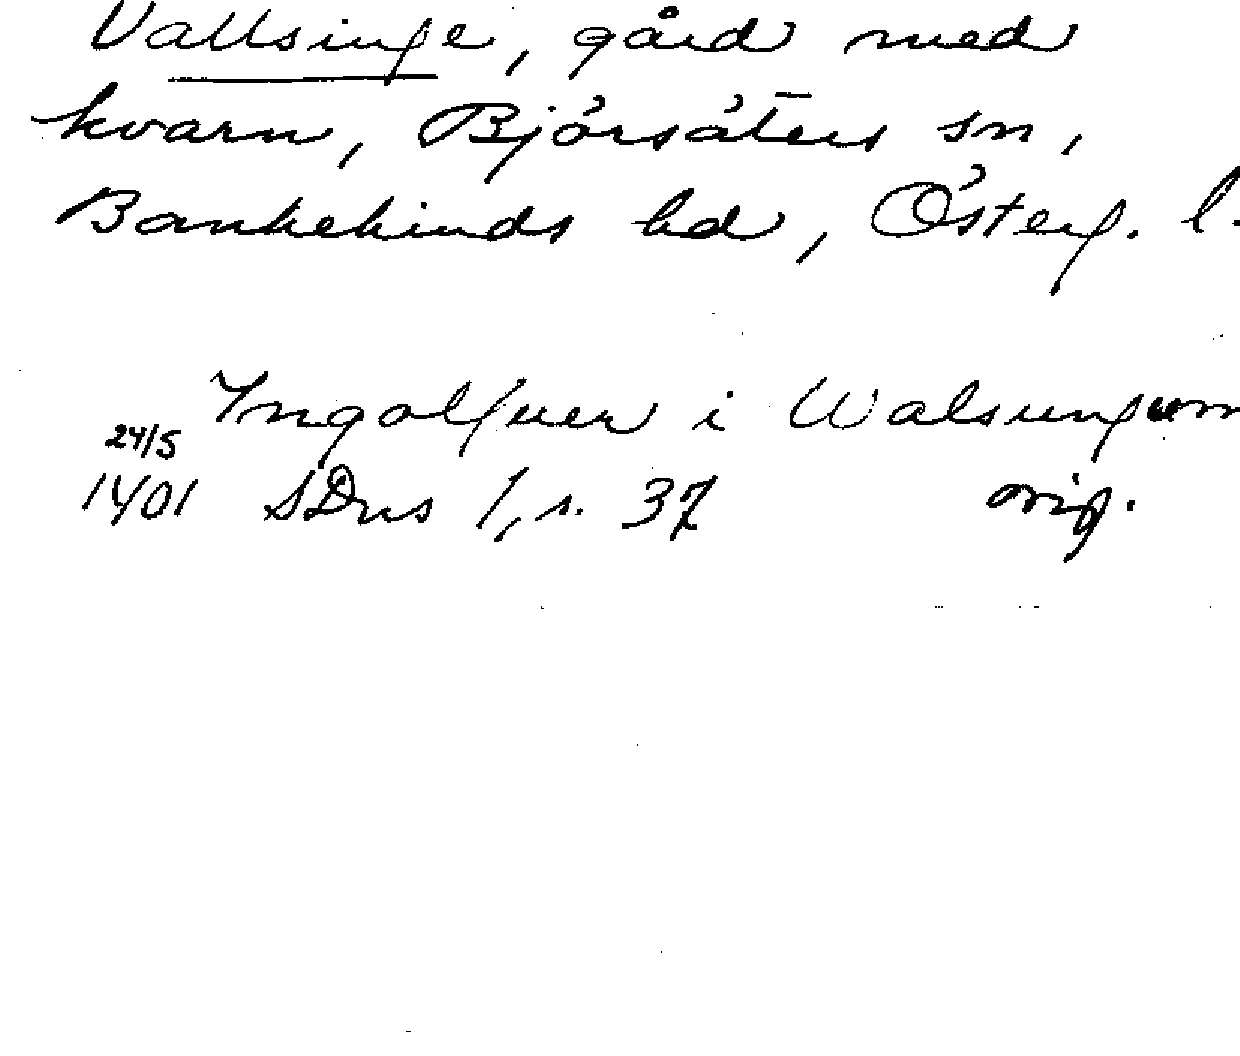 Vallsinge, gård med
kvarn, Björsäters sn,
Bankekinds hd, Österg. l.
Ingolfuer i Walsungum
24/5
1401 SDns 1, s. 37 orig.